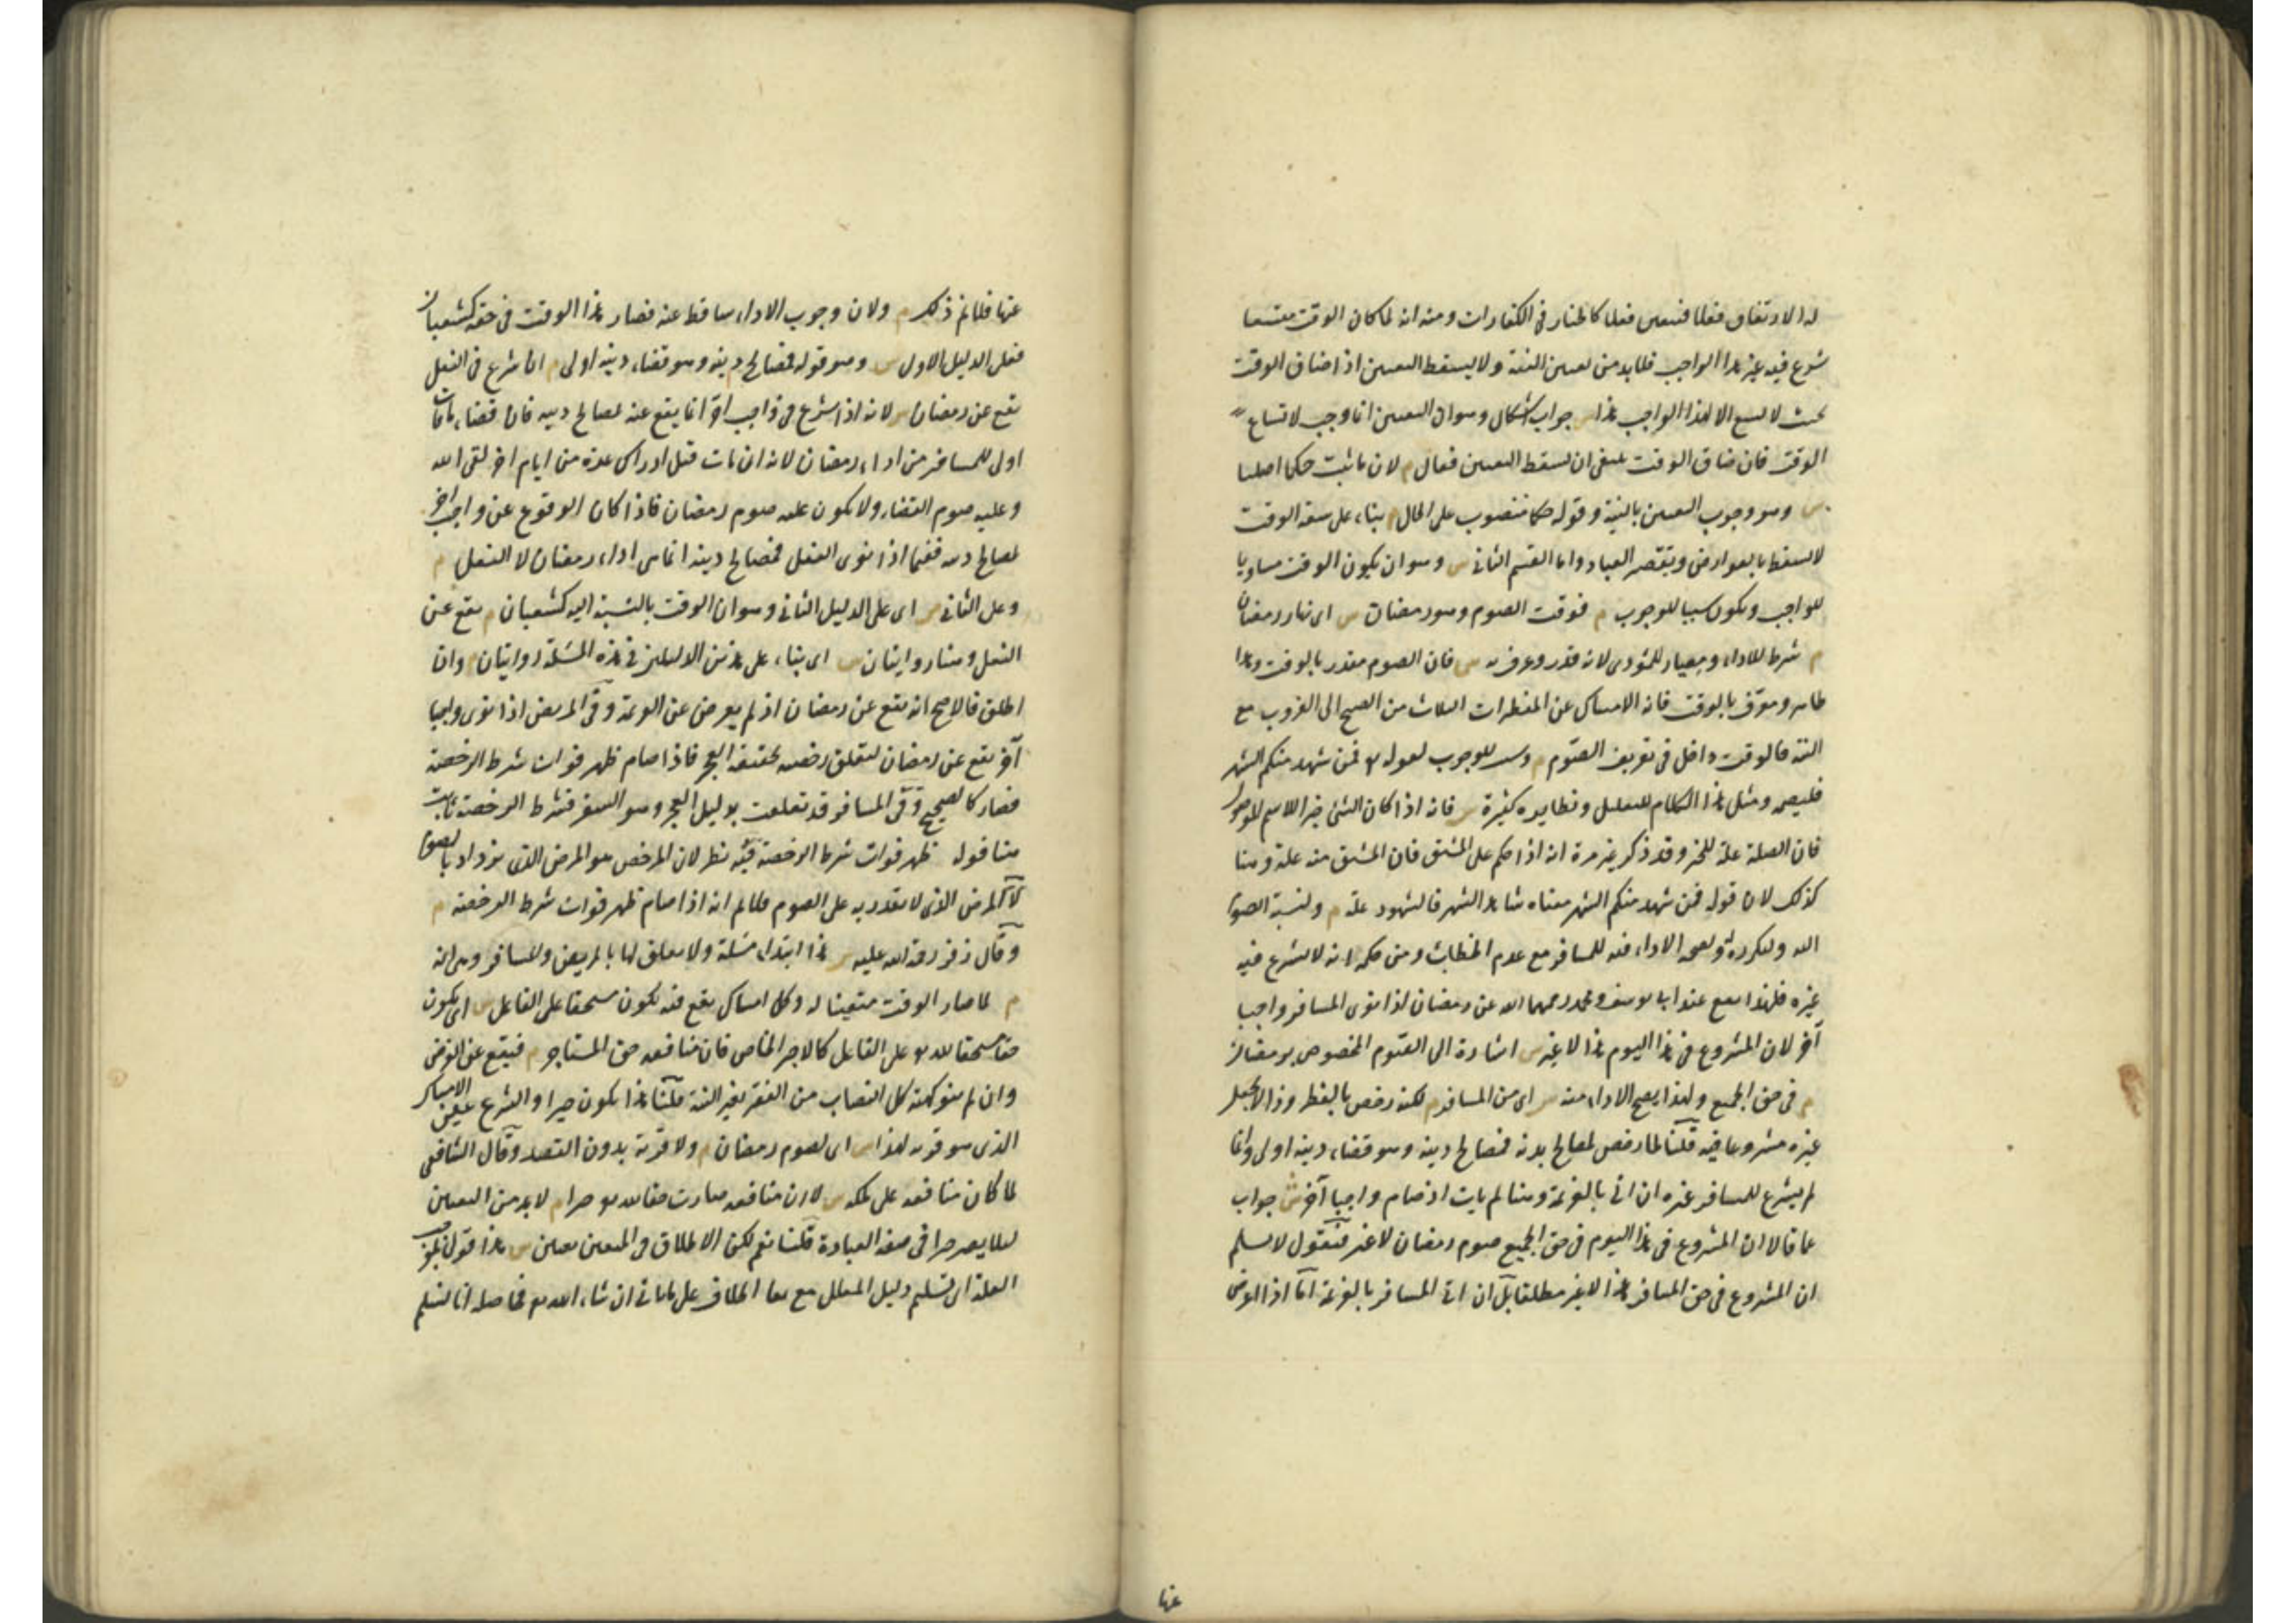 له الارتفاق فعلا فيتعين فعلا كالخيار في الكفارات ومنه انه لما كان الوقت متسعا
شرع فيه غير هذا الواجب فلابد من تعيين النية ولا يسقط التعيين اذا ضاق الوقت
بحيث لا يسع الا لهذا الواجب هذا جواب اشكال وهو ان التعيين انما وجب لاتساع
الوقت فان ضاق الوقت ينبغي ان يسقط التعيين فقال م لان ما ثبت حكما اصليا
س وهو وجوب التعيين بالنية وقوله حكما منصوب على الحال م بناء على سعة الوقت
لا يسقط بالعوارض وبتقصير العباد واما القسم الثاني س وهو ان يكون الوقت مساويا
للواجب ويكون سببا للوجوب م فوقت الصوم وهو رمضان س اى نهار رمضان
م شرط للاداء ومعيار للمؤدى لانه قدر وعرف به س فان الصوم مقدر بالوقت وهذا
ظاهر ومعرف بالوقت فانه الامساك عن المفطرات الثلاث من الصبح الى الغروب مع
النية فالوقت داخل في تعريف الصوم م وسبب للوجوب لقوله تع فمن شهد منكم الشهر
فليصمه ومثل هذا الكلام للتعليل ونظايره كثيرة س فانه اذا كان الشئ خبر الاسم الموصول
فان الصلة علة للخبر وقد ذكر غير مرة انه اذا حكم على المشتق فان المشتق منه علة وهنا
كذلك لان قوله فمن شهد منكم الشهر معناه شاهد الشهر فالشهود علة م ولنسبة الصوم
اليه ولتكرره به ولصحة الاداء فيه للمسافر مع عدم الخطاب ومن حكمه انه لا يشرع فيه
غيره فلهذا يقع عند ابى يوسف ومحمد رحمهما الله عن رمضان اذا نوى المسافر واجبا
آخر لان المشروع في هذا اليوم هذا لا غير س اشارة الى الصوم المخصوص برمضان
م في حق الجميع ولهذا يصح الاداء منه س اى من المسافر م لكنه رخص بالفطر وذا لا يجعل
غيره مشروعا فيه قلنا لما رخص لمصالح بدنه فمصالح دينه وهو قضاء دينه اولى وانما
لم يشرع للمسافر غيره ان اتى بالعزيمة وهنا لم يات اذ صام واجبا آخر ش جواب
عما قالا ان المشروع في هذا اليوم في حق الجميع صوم رمضان لا غير فنقول لا نسلم
ان المشروع في حق المسافر هذا لا غير مطلقا بل ان اتى المسافر بالعزيمة اما اذا اعرض
عنها
عنها فلا نم ذلك م ولان وجوب الاداء ساقط عنه فصار هذا الوقت في حقه كشعبان
فعلى الدليل الاول س وهو قوله فمصالح دينه وهو قضاء دينه اولى م ان شرع في النفل
يقع عن رمضان س لانه اذا شرع في واجب آخر انما يقع عنه لمصالح دينه فان قضاء ما فات
اولى للمسافر من اداء رمضان لانه ان مات قبل ادراك عدة من ايام اخر لقى الله
وعليه صوم القضاء ولا يكون عليه صوم رمضان فاذا كان الوقوع عن واجب آخر
لمصالح دينه ففيما اذا نوى النفل فمصالح دينه انما هى اداء رمضان لا النفل م
وعلى الثاني س اى على الدليل الثاني وهو ان الوقت بالنسبة اليه كشعبان م يقع عن
النفل وهنا روايتان س اى بناء على هذين الدليلين في هذه المسئلة روايتان م وان
اطلق فالاصح انه يقع عن رمضان اذ لم يعرض عن العزيمة وفي المريض اذا نوى واجبا
آخر يقع عن رمضان لتعلق رخصته بحقيقة العجز فاذا صام ظهر فوات شرط الرخصة
فصار كالصحيح وفي المسافر قد تعلقت بدليل العجز وهو السفر فشرط الرخصة ثابت
هنا قوله ظهر فوات شرط الرخصة فيه نظر لان المرخص هو المرض الذى يزداد بالصوم
لا المرض الذى لا يقدر به على الصوم فلا نم انه اذا صام ظهر فوات شرط الرخصة م
وقال زفر رحمة الله عليه س هذا ابتداء مسئلة ولا تعلق لها بالمريض والمسافر وهى انه
م لما صار الوقت متعينا له وكل امساك يقع فيه يكون مستحقا على الفاعل س اى يكون
حقا مستحقا لله تع على الفاعل كالاجير الخاص فان منافعه حق المستاجر م فيقع عن الفرض
وان لم ينو كهبة كل النصاب من الفقير بغير النية قلنا هذا يكون جبرا والشرع عين الامساك
الذى هو قربة لهذا س اى لصوم رمضان م ولا قربة بدون القصد وقال الشافعى
لما كان منافعه على ملكه س لا ان منافعه صارت حقا لله تع جبرا م لابد من التعيين
لئلا يصير جبرا في صفة العبادة قلنا نعم لكن الاطلاق في المتعين تعيين س هذا قول بموجب
العلة اى تسليم دليل المعلل مع بقاء الخلاف على ما ياتى ان شاء الله تع فحاصله انا نسلم